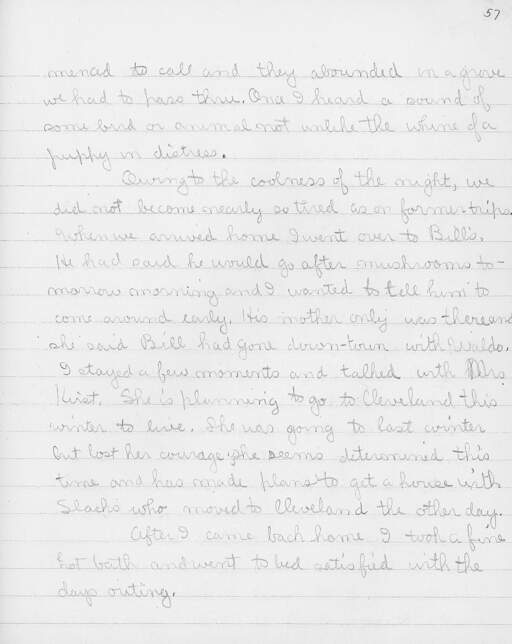 57
menced to call and they abounded in a grove
we had to pass thru. Once I heard a sound of
some bird or animal not unlike the whine of a
puppy in distress.
Owing to the coolness of the night, we
did not become nearly so tired as on former trips.
When we arrived home I went over to Bill's.
He had said he would go after mushrooms to-
morrow morning and I wanted to tell him to
come around early. His mother only was there and
she said Bill had gone down-town with Waldo.
I stayed a few moments and talked with Mrs
Kist. She is planning to go to Cleveland this
winter to live. She was going to last winter
but lost her courage, she seems determined this
time and has made plans to get a house with
Slacks who moved to Cleveland the other day.
After I came back home I took a fine
hot bath and went to bed satisfied with the
days outing.